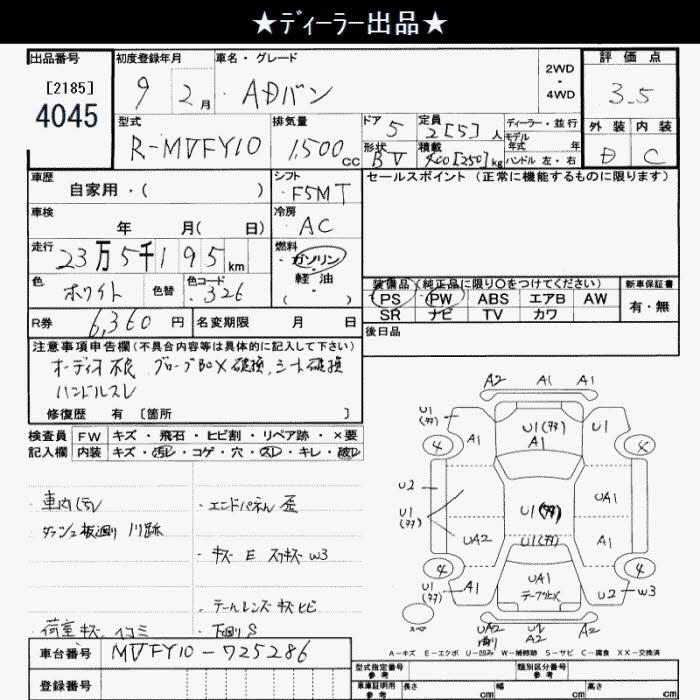 ★ディーラー出品★
出品番号
[2185]
4045
初度登録年月
9 2月
車名・グレード
ADバン
2WD
・
4WD
評価点
3.5
外装 内装
D C
型式
R-MVFY10
排気量
1,500cc
ドア 5
定員 2[5]人
形状 BV
積載 400[250]kg
ディーラー・並行
モデル年式 年
ハンドル 左・右
車歴
自家用・( )
シフト
F5MT
セールスポイント (正常に機能するものに限ります)
車検
年 月( 日)
冷房
AC
走行
23万5千195km
燃料
ガソリン
・
軽油
( )
色
ホワイト
色替
色コード
326
装備品 (純正品に限り○をつけてください)
PS PW ABS エアB AW
SR ナビ TV カワ
新車保証書
有・無
R券 6,360円
名変期限 月 日
後日品
注意事項申告欄 (不具合内容等は具体的に記入して下さい)
オーディオ不良 グローブBOX破損、シート破損
ハンドルスレ
修復歴 有 [箇所 ]
検査員記入欄
FW キズ・飛石・ヒビ割・リペア跡・×要
内装 キズ・汚レ・コゲ・穴・スレ・キレ・破レ
・エンドパネル 歪
・キズ E W3
・テールレンズ キズ ヒビ
荷室 キズ ・下回りS
A2 A1 A1
U1
A1
U1
A1
U1
4
4
U2
U1
UA2
U1
U1
UA1
A1
4
4
U1
A1
UA1
U2 W3
スペア
UA2
U1
A2
UA2
A-キズ E-エクボ U-凹み W-補修跡 S-サビ C-腐食 XX-交換済
車台番号 MVFY10-725286
登録番号
型式指定番号 参考
類別区分番号 参考
車庫証明用 参考 長さ cm 幅 cm 高さ cm